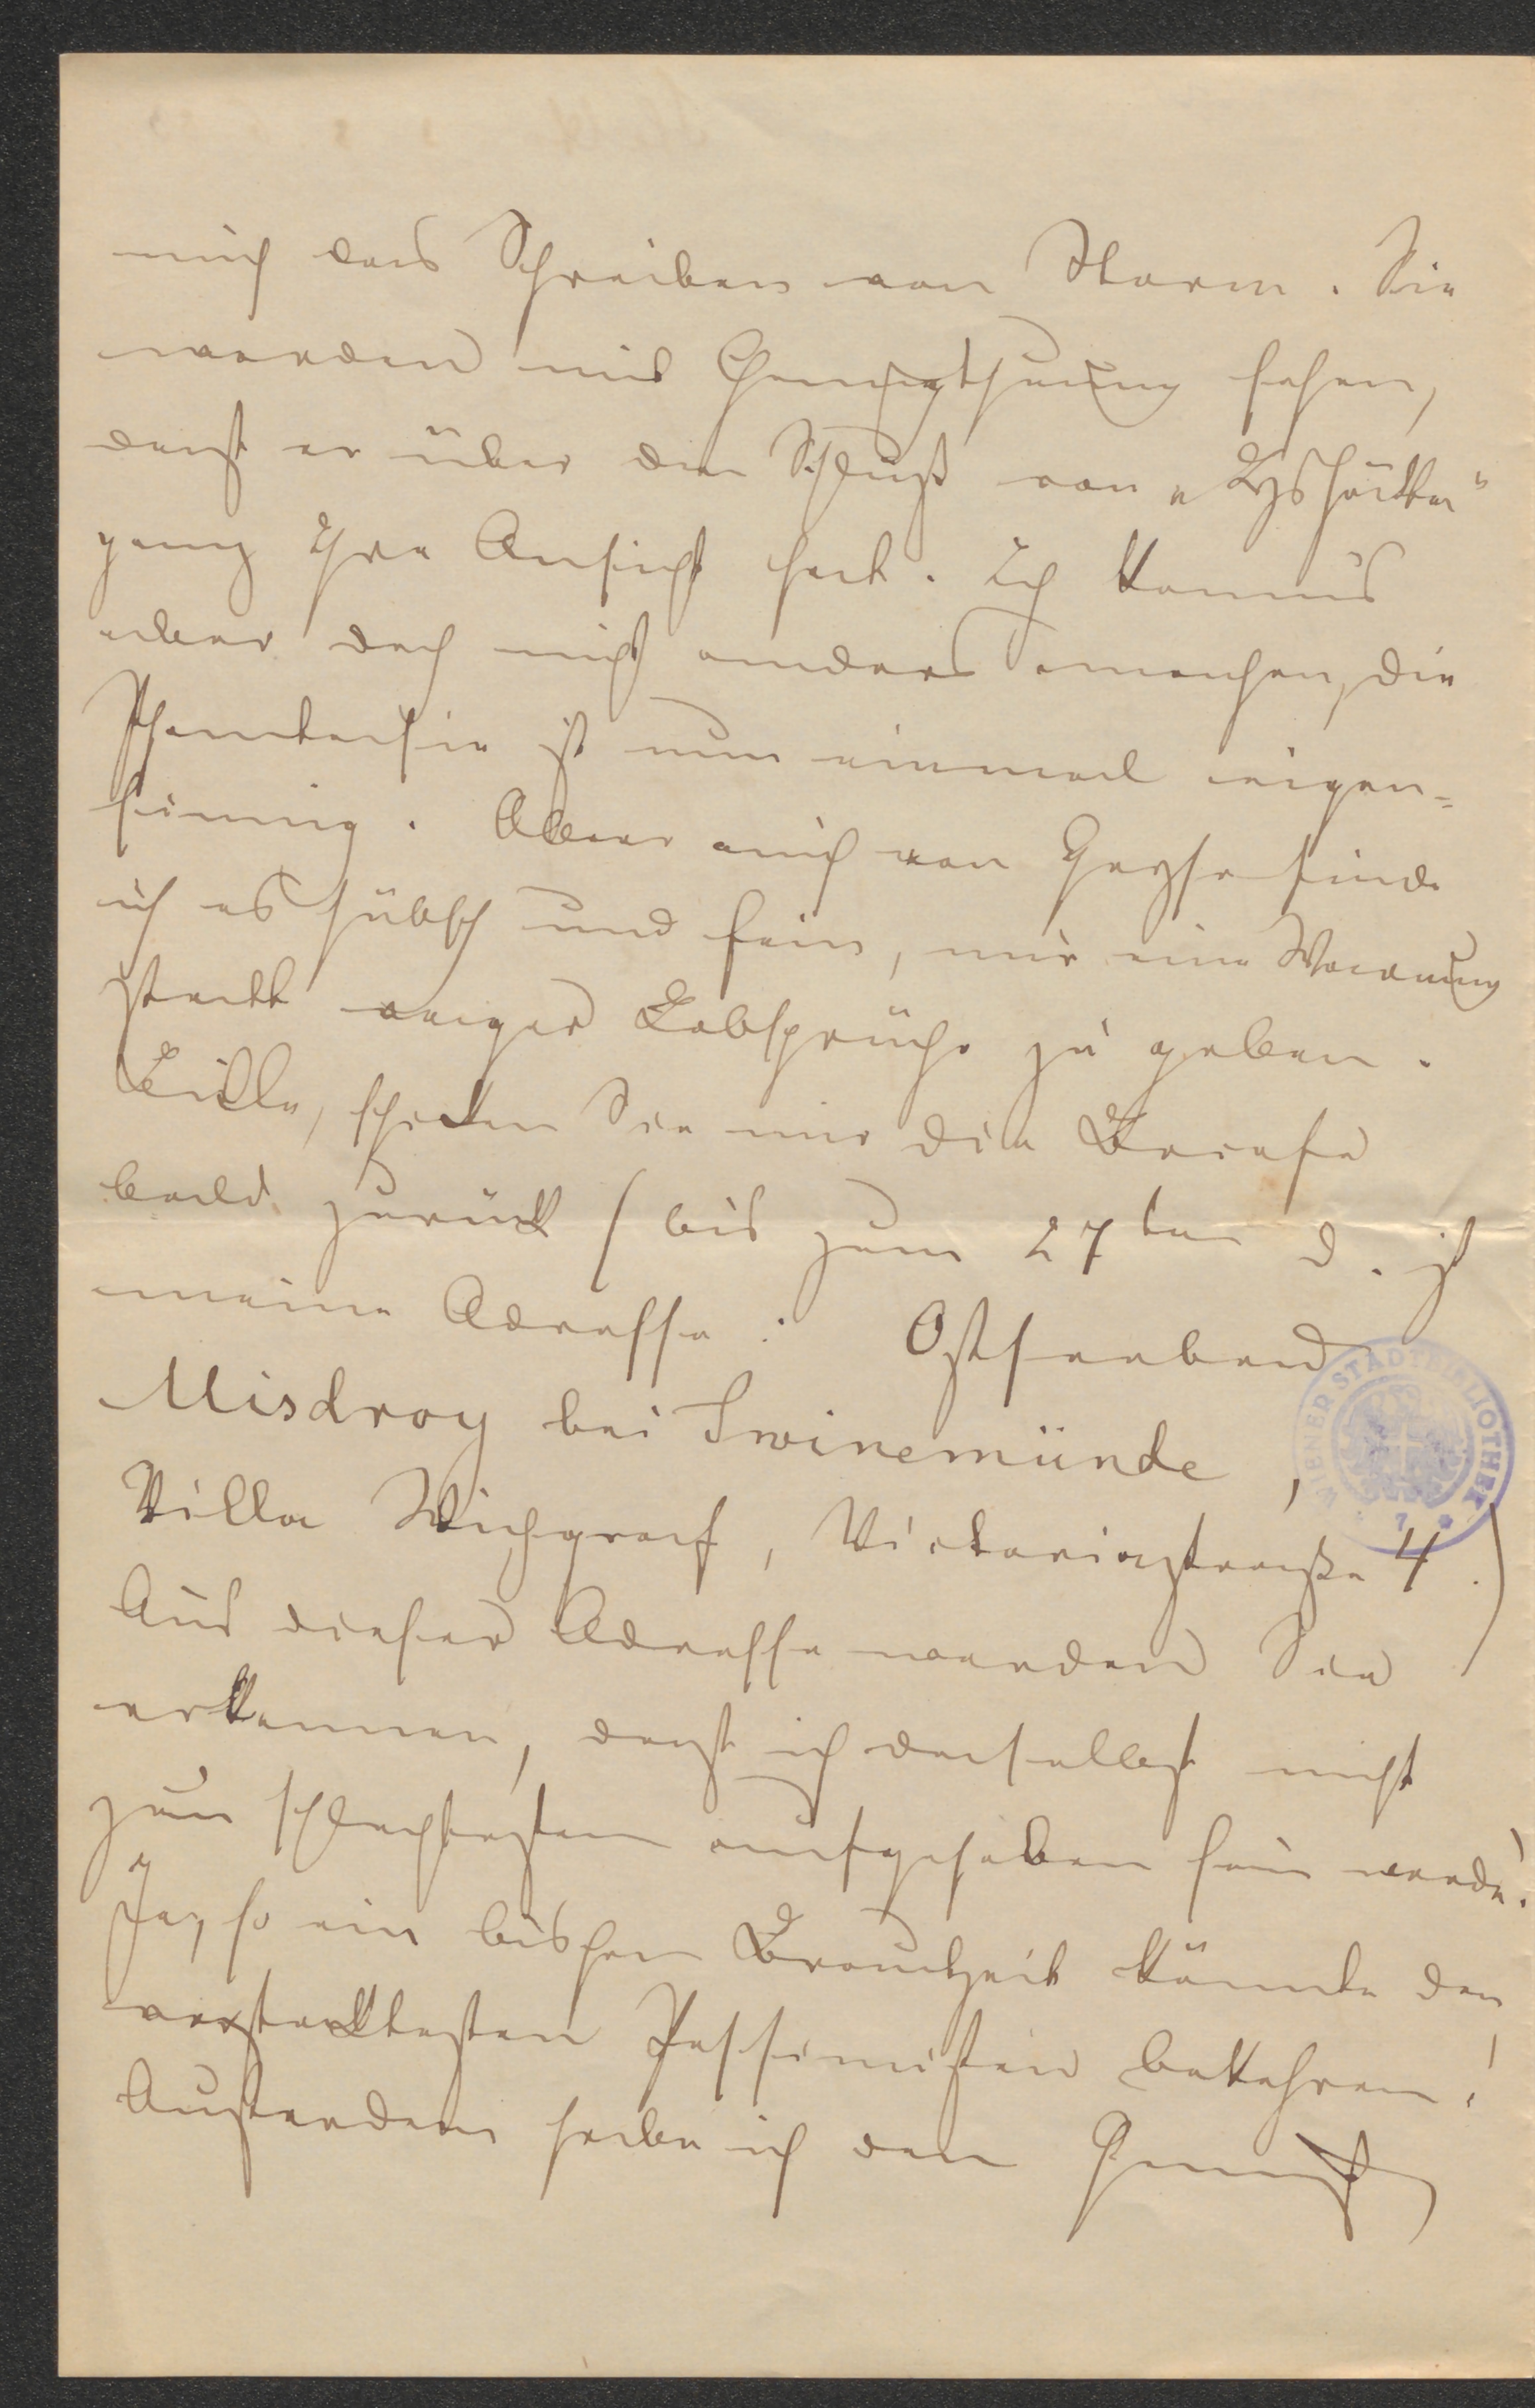 mich das Schreiben von Storm. Sie
werden mit Genugthuung sehen,
daß er über den Schluß von „Lyshätta"
ganz Ihre Ansicht hat. Ich konnt's
aber doch nicht anders machen, die
Phantasie ist nun einmal eigen=
sinnig. Aber auch von Heyse finde
ich es hübsch und fein, mir eine Warnung
statt vager Lobsprüche zu geben.
Bitte, schicken Sie mir die Briefe
bald zurück (bis zum 27ten d. ist
meine Adresse: Ostseebad
Misdroy bei Swinemünde,
Villa Wichgraf, Victoriastraße 4.)
Aus dieser Adresse werden Sie
erkennen, daß ich daselbst nicht
zum schlechtesten aufgehoben sein werde.
Ja, so ein bischen Brautzeit könnte den
verstocktesten Pessimisten bekehren!
Außerdem habe ich den Genuß,
WIENER STADTBIBLIOTHEK